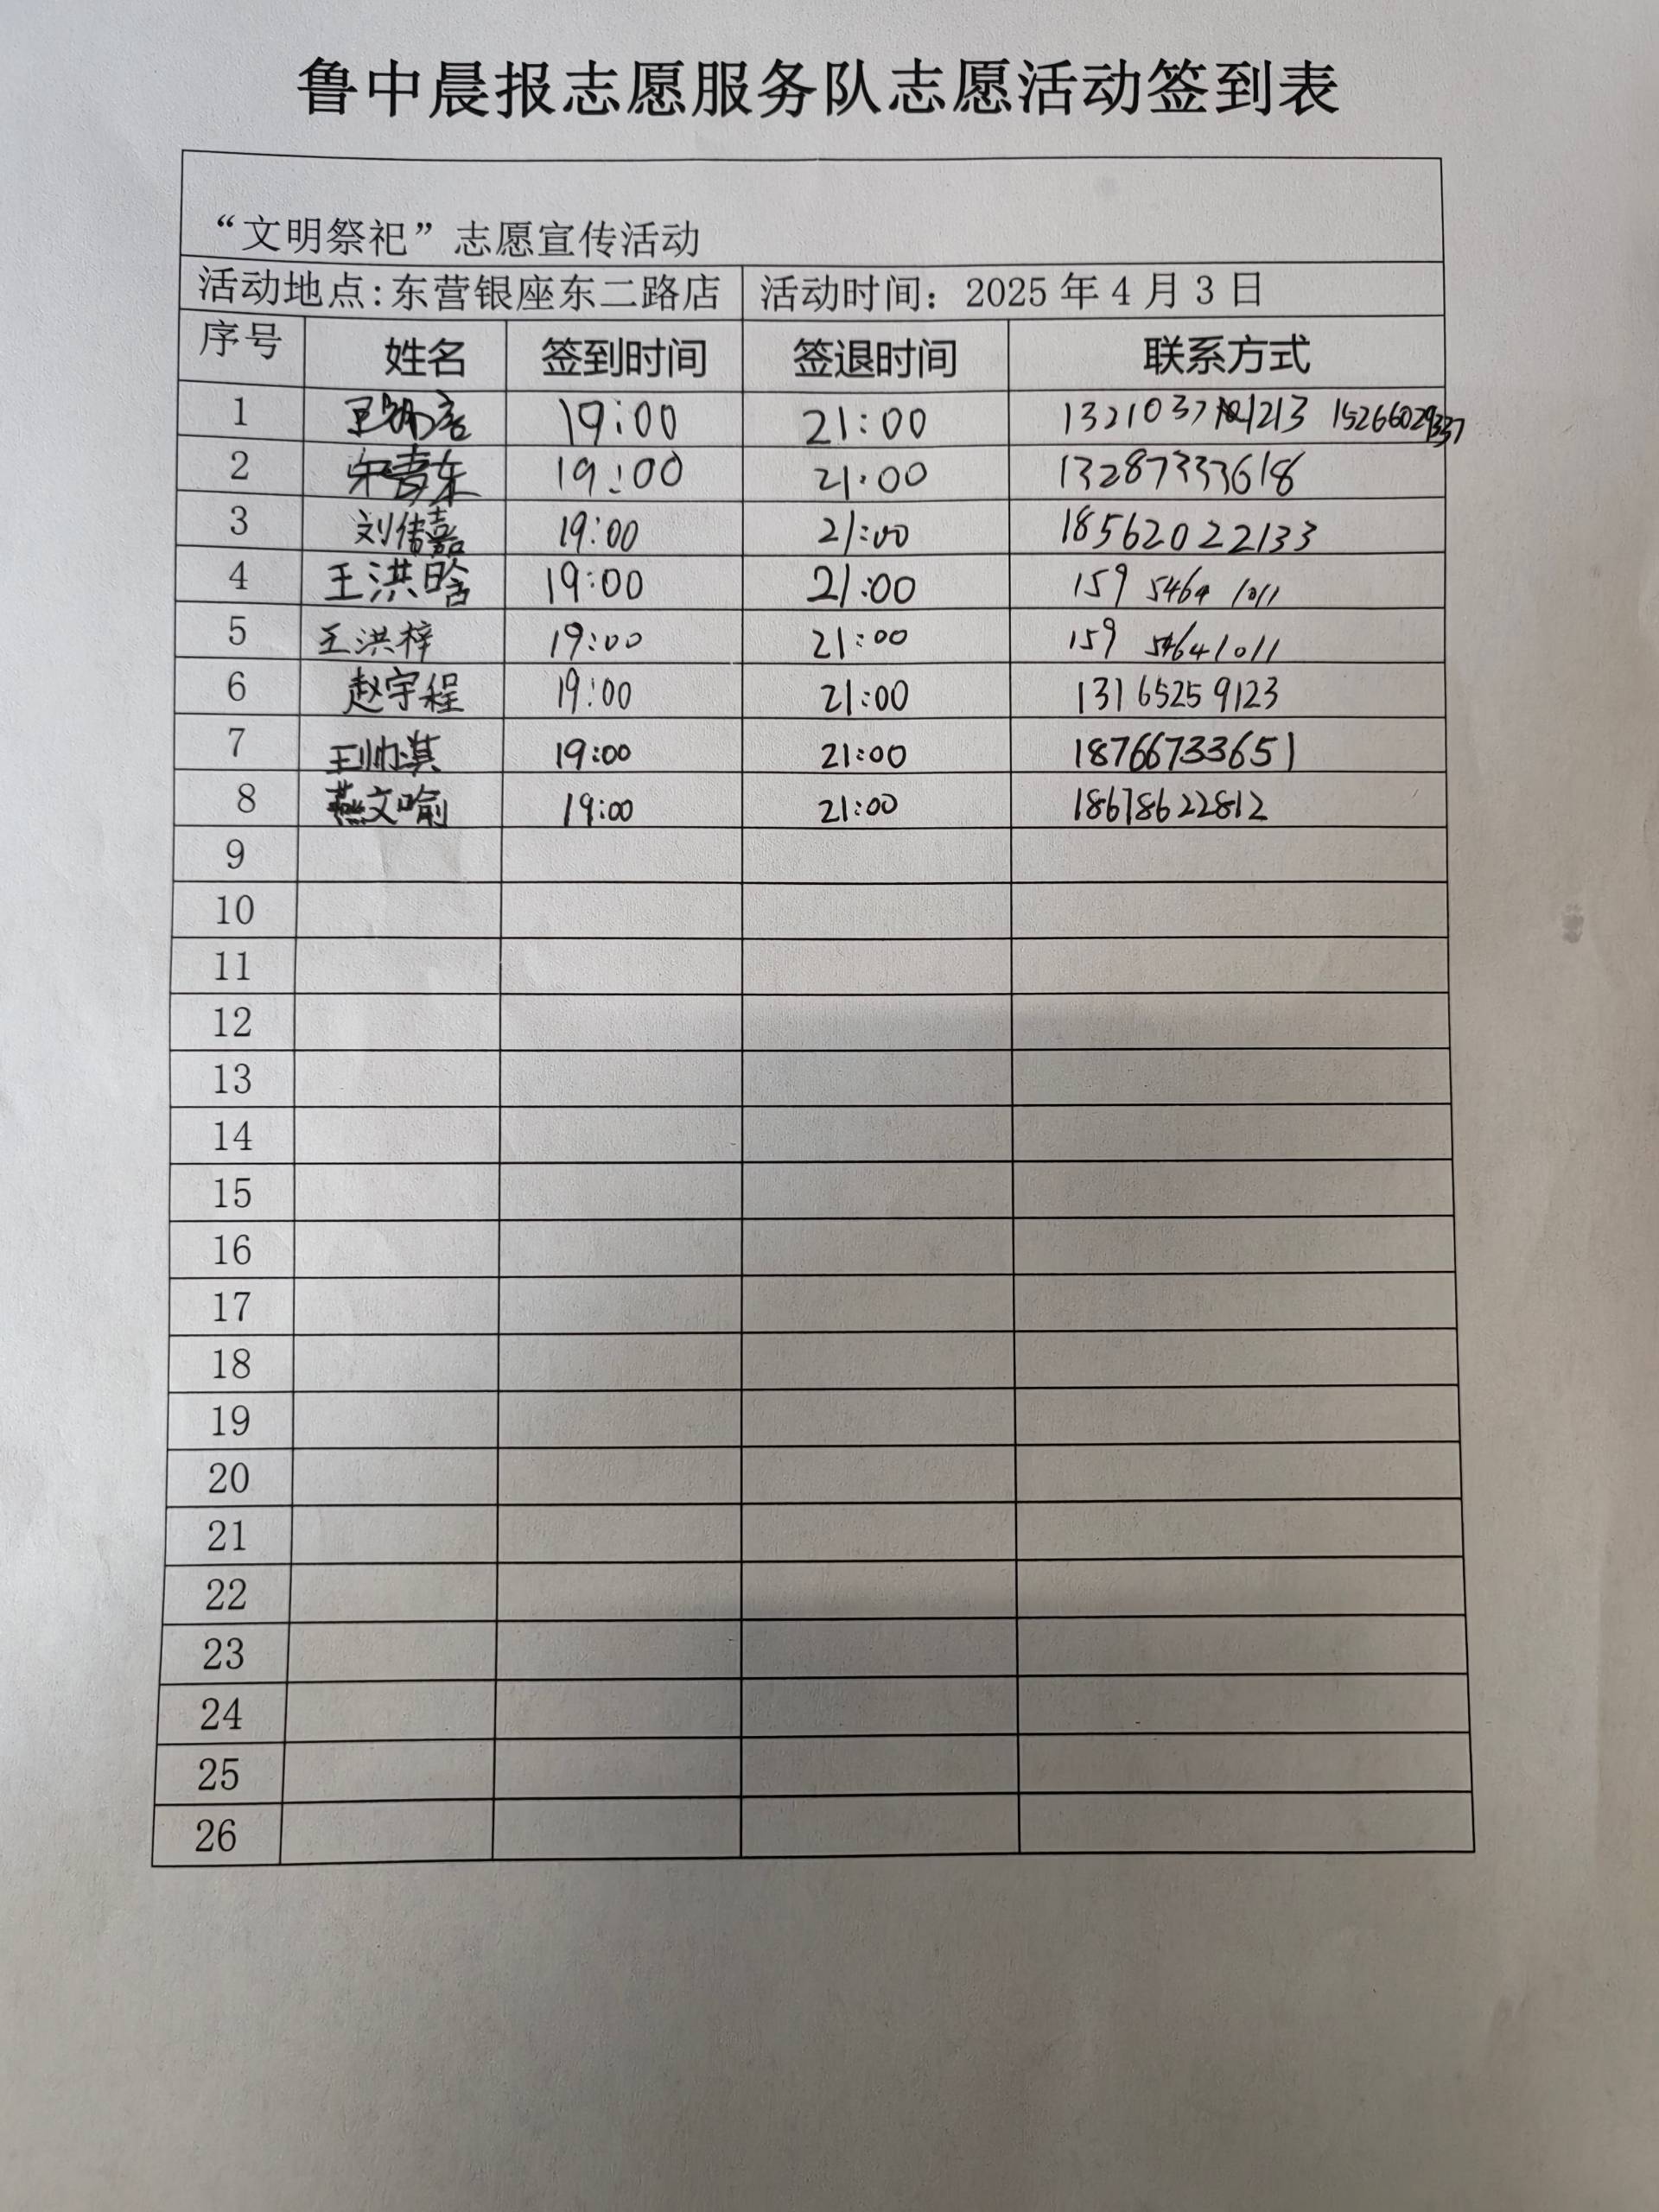 鲁中晨报志愿服务队志愿活动签到表
“文明祭祀”志愿宣传活动
活动地点:东营银座东二路店 活动时间：2025年4月3日
序号 姓名 签到时间 签退时间 联系方式
1 19:00 21:00
2 19:00 21:00 13287333618
3 刘传嘉 19:00 21:00 18562022133
4 王洪晗 19:00 21:00 159 5464 1011
5 王洪梓 19:00 21:00 159 54641011
6 赵宇程 19:00 21:00 13165259123
7 王帅淇 19:00 21:00 18766733651
8 燕文喻 19:00 21:00 18678622812
9
10
11
12
13
14
15
16
17
18
19
20
21
22
23
24
25
26